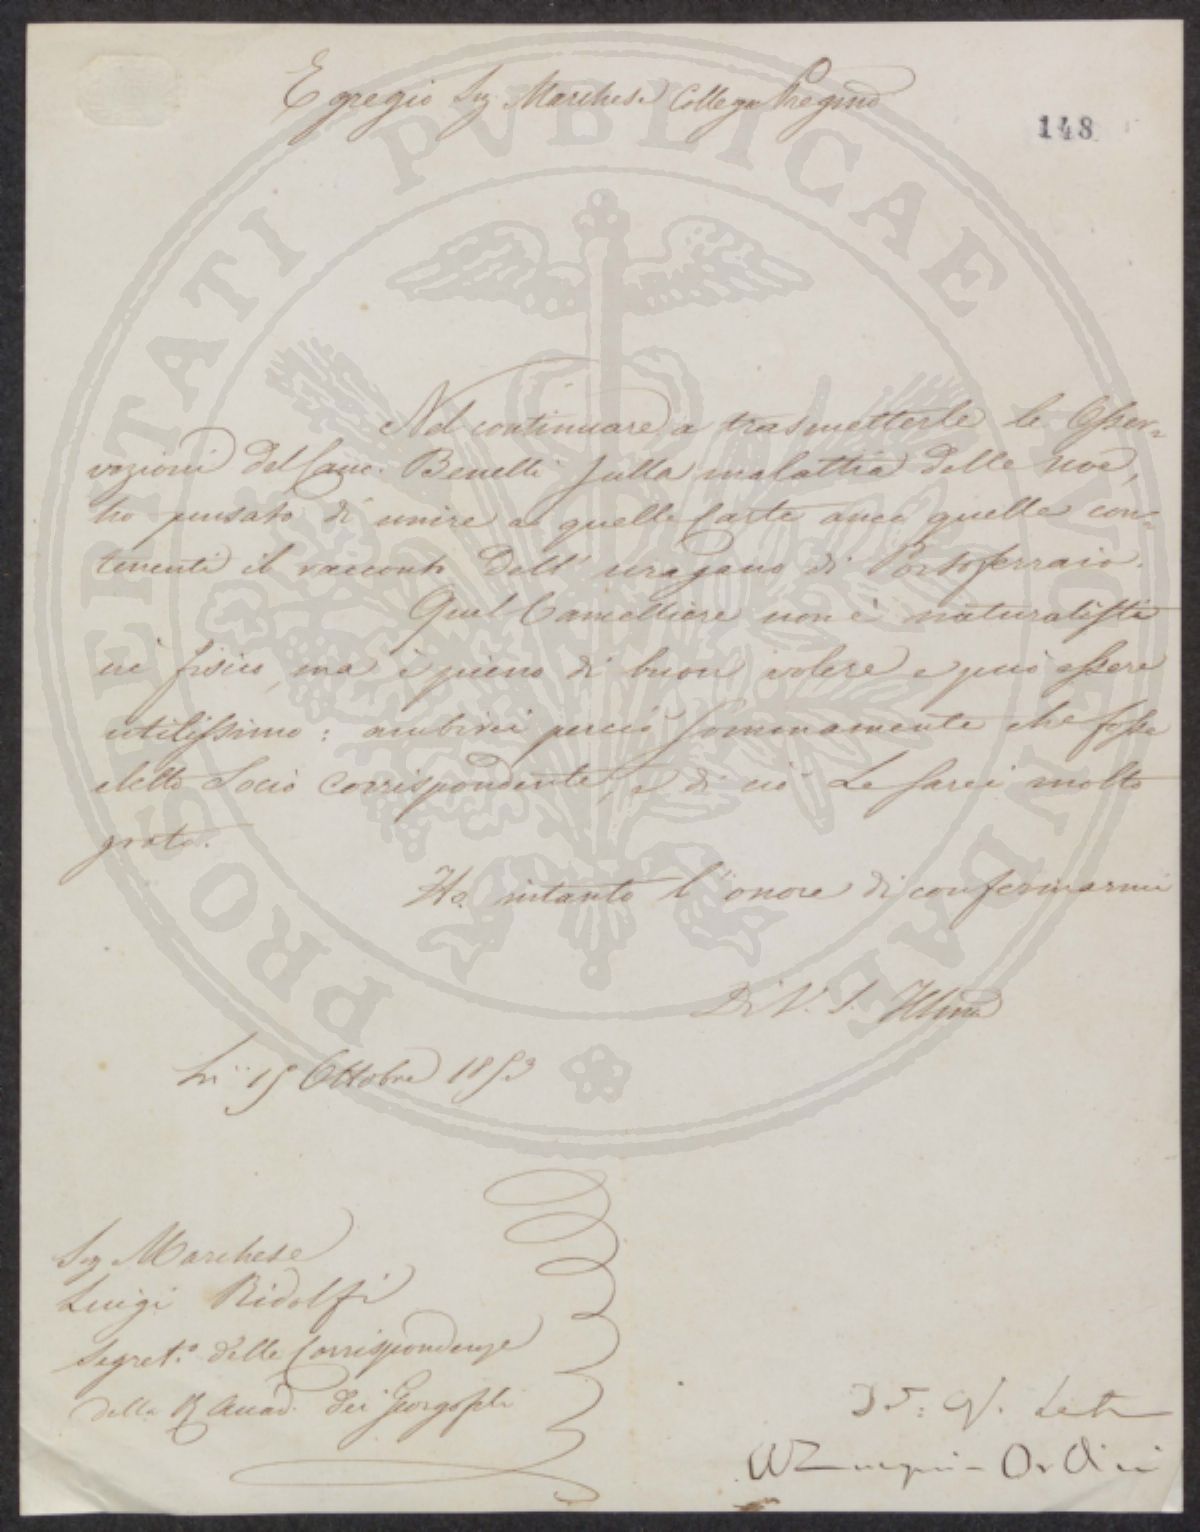 Egregio Sig. Marchese Collega Pregmo
148
Nel continuare a trasmetterle le Osser-
vazioni del Canc. Benelli sulla malattia delle uve,
ho pensato di unire a quelle Carte anco quelle con-
tenenti il racconto dell' uragano di Portoferraio.
Quel Cancelliere non è naturalista
nè fisico, ma è pieno di buon volere e può essere
utilissimo: ambirei perciò sommamente che fosse
eletto Socio Corrispondente, e di ciò Le sarei molto
grato.
Ho intanto l'onore di confermarmi
Di V. S. Illma
Li 15 Ottobre 1853
Sig Marchese
Luigi Ridolfi
Segret.° delle Corrispondenze
della R Accad. dei Georgofili
PROSPERITATI PVBLICAE AVGENDAE